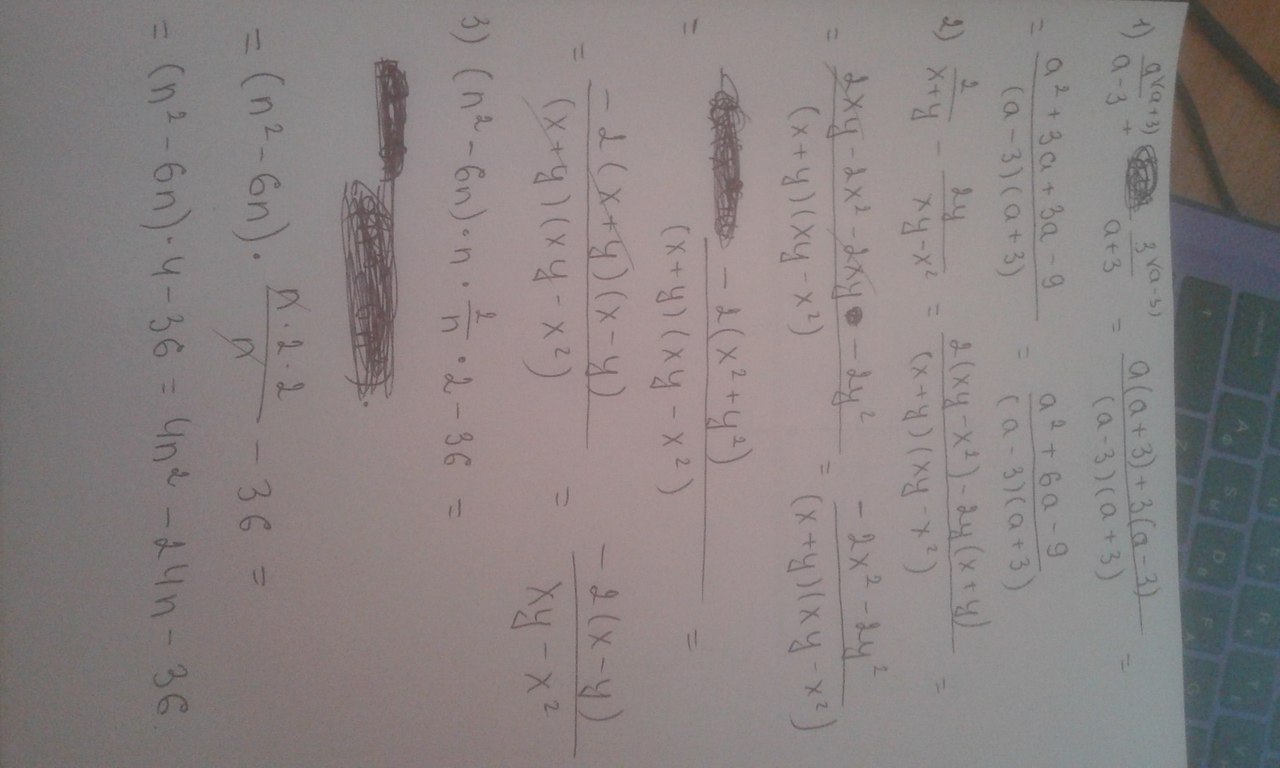 1) a\(a+3)/(a-3) + 3\(a-3)/(a+3) = (a(a+3)+3(a-3))/((a-3)(a+3)) =
= (a² + 3a + 3a - 9)/((a-3)(a+3)) = (a² + 6a - 9)/((a-3)(a+3))
2) 2/(x+y) - 2y/(xy-x²) = (2(xy-x²)-2y(x+y))/((x+y)(xy-x²)) =
= (2xy - 2x² - 2xy - 2y²)/((x+y)(xy-x²)) = (-2x² - 2y²)/((x+y)(xy-x²))
= (-2(x²+y²))/((x+y)(xy-x²)) =
= (-2(x+y)(x-y))/((x+y)(xy-x²)) = (-2(x-y))/(xy-x²)
3) (n²-6n)·n·2/n·2-36 =
= (n²-6n)·(n·2·2)/n - 36 =
= (n²-6n)·4-36 = 4n² - 24n - 36